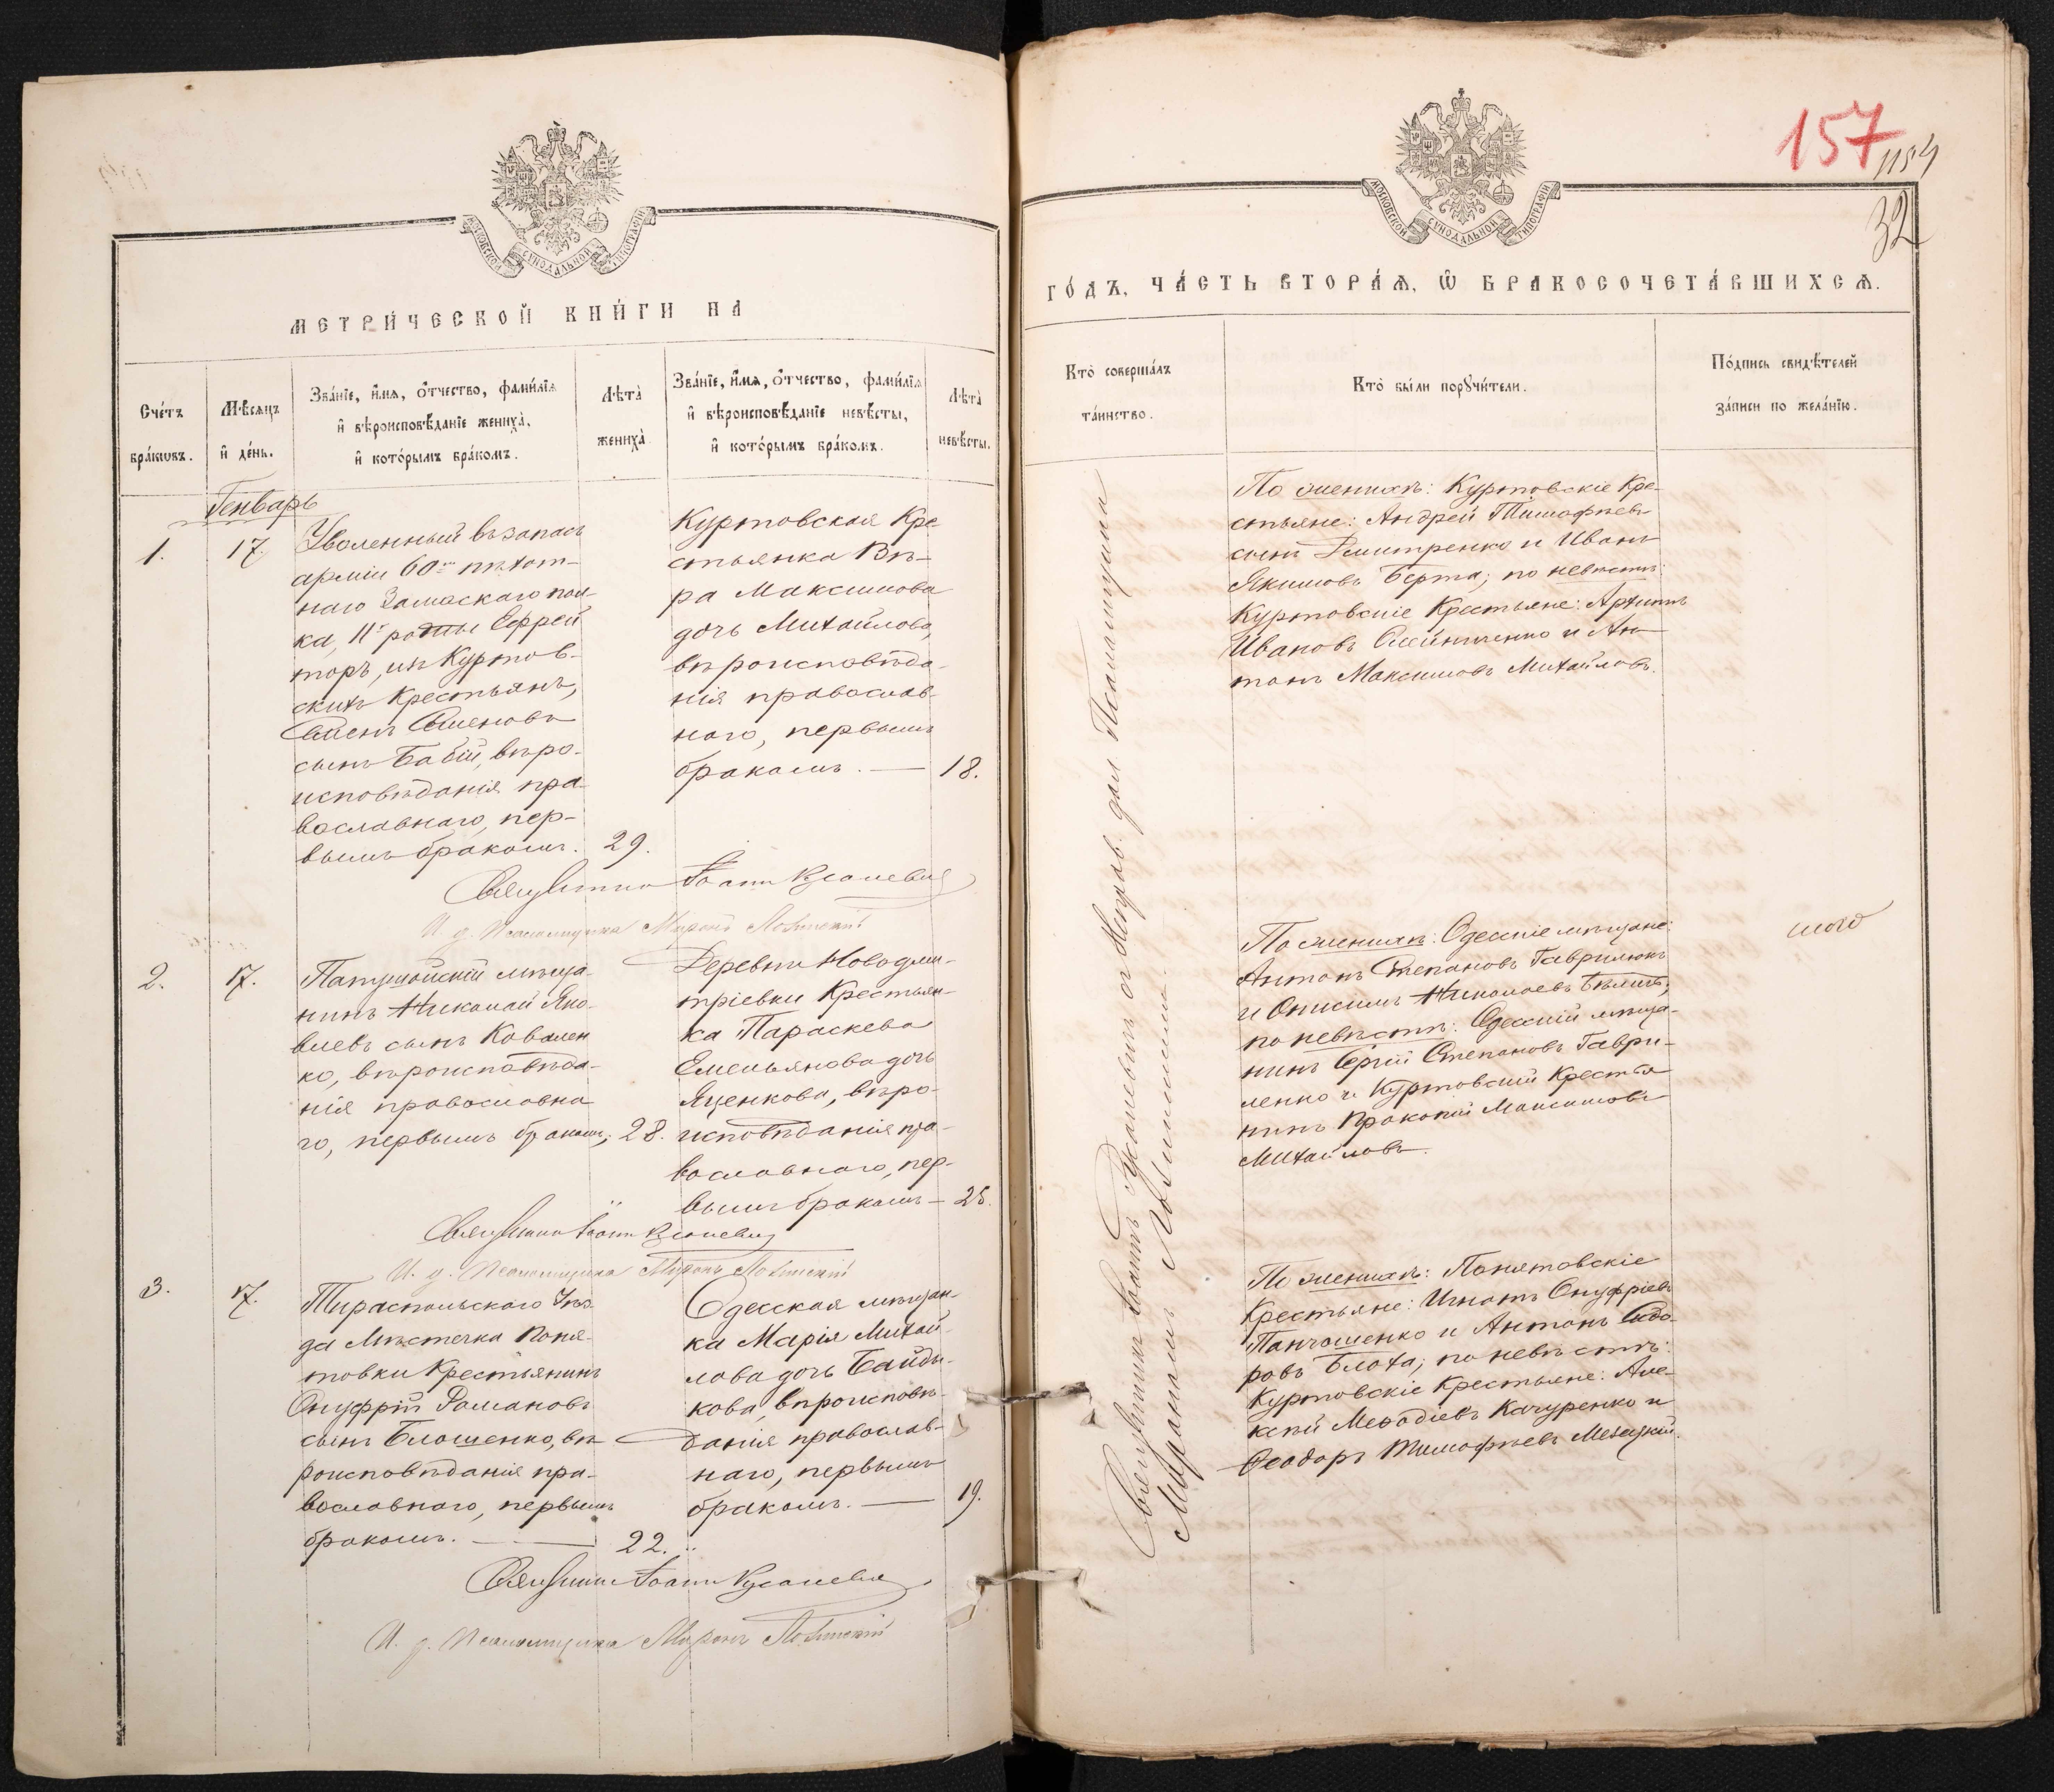 МОСКОВСКОЙ СУНОДАЛЬНОЙ ТИПОГРАФІИ
МЕТРИ́ЧЕСКОЙ КНИ́ГИ НА
Сче́тъ бра́кωвъ.
Мѣ́сяцъ и҆ де́нь.
Зва́нїе, и҆́мя, ѻ҆́тчество, фами́лїя
и҆ вѣроисповѣ́данїе жениха̀,
и҆ кото́рымъ бра́комъ.
Лѣта̀ жениха̀
Зва́нїе, и҆́мя, ѻ҆́тчество, фами́лїя
и҆ вѣроисповѣ́данїе невѣ́сты,
и҆ кото́рымъ бра́комъ.
Лѣта̀ невѣ́сты.
Генварь
1.
17.
Уволенный въ запасъ
арміи 60го пѣхот-
наго Замоскаго пол-
ка, 11й роты Ефрей
торъ, изъ Куртов-
скихъ Крестьянъ,
Семеновъ
сынъ Бабій, вѣро-
исповѣданія пра-
вославнаго, пер-
вымъ бракомъ.
29.
Куртовская Кре
стьянка Вѣ-
ра Максимова
дочь Михайлова,
вѣроисповѣда-
нія православ-
наго, первымъ
бракомъ. —
18.
Священникъ Іоаннъ
И. д. Псаломщика Миронъ
2.
17.
мѣща-
нинъ Николай Яко-
влевъ сынъ Ковален
ко, вѣроисповѣда-
нія православна
го, первымъ бракомъ,
28.
Деревни Новодми-
тріевки Крестьян-
ка Параскева
Емельянова дочь
Яценкова, вѣро-
исповѣданія пра-
вославнаго, пер-
вымъ бракомъ —
25.
Священникъ Іоаннъ
И. д. Псаломщика Миронъ
3.
17.
Тираспольскаго Уѣз
да Мѣстечка Поня-
товки Крестьянинъ
Онуфрій Романовъ
сынъ Блошенко, вѣ-
роисповѣданія пра-
вославнаго, первымъ
бракомъ. —
22.
Одесская мѣщан-
ка Марія Михай-
лова дочь Байды-
кова, вѣроисповѣ-
данія православ-
наго, первымъ
бракомъ. —
19.
Священникъ Іоаннъ
И. д. Псаломщика Миронъ
157
1154
32
МОСКОВСКОЙ СУНОДАЛЬНОЙ ТИПОГРАФІИ
ГО́ДЪ, ЧА́СТЬ ВТОРА́Ѧ, Ѽ БРАКОСОЧЕТА́ВШИХСѦ.
Кто̀ соверша́лъ
та́инство.
Кто̀ бы́ли порꙋчи́тели.
По́дпись свидѣ́телей
за́писи по жела́нїю.
Священникъ Іоаннъ съ
Мирономъ
По женихѣ: Куртовскіе Кре-
стьяне: Андрей Тимофѣевъ
сынъ Дмитренко и Иванъ
Якимовъ Берта; по невѣстѣ:
Куртовскіе Крестьяне: Архипъ
Ивановъ Олейниченко и Ан-
тонъ Максимовъ Михайловъ.
По женихѣ: Одесскіе мѣщане:
Антонъ Степановъ Гаврилюкъ
и Онисимъ Николаевъ
по невѣстѣ: Одесскій мѣща-
нинъ Сергій Степановъ Гаври-
ленко и Куртовскій Крестья
нинъ Прокопій Максимовъ
Михайловъ.
По женихѣ: Понятовскіе
Крестьяне: Игнатъ Онуфріевъ
Панчошенко и Антонъ Сидо-
ровъ Блоха; по невѣстѣ:
Куртовскіе Крестьяне: Але-
ксѣй Мефодіевъ Качуренко и
Ѳеодоръ Тимофѣевъ